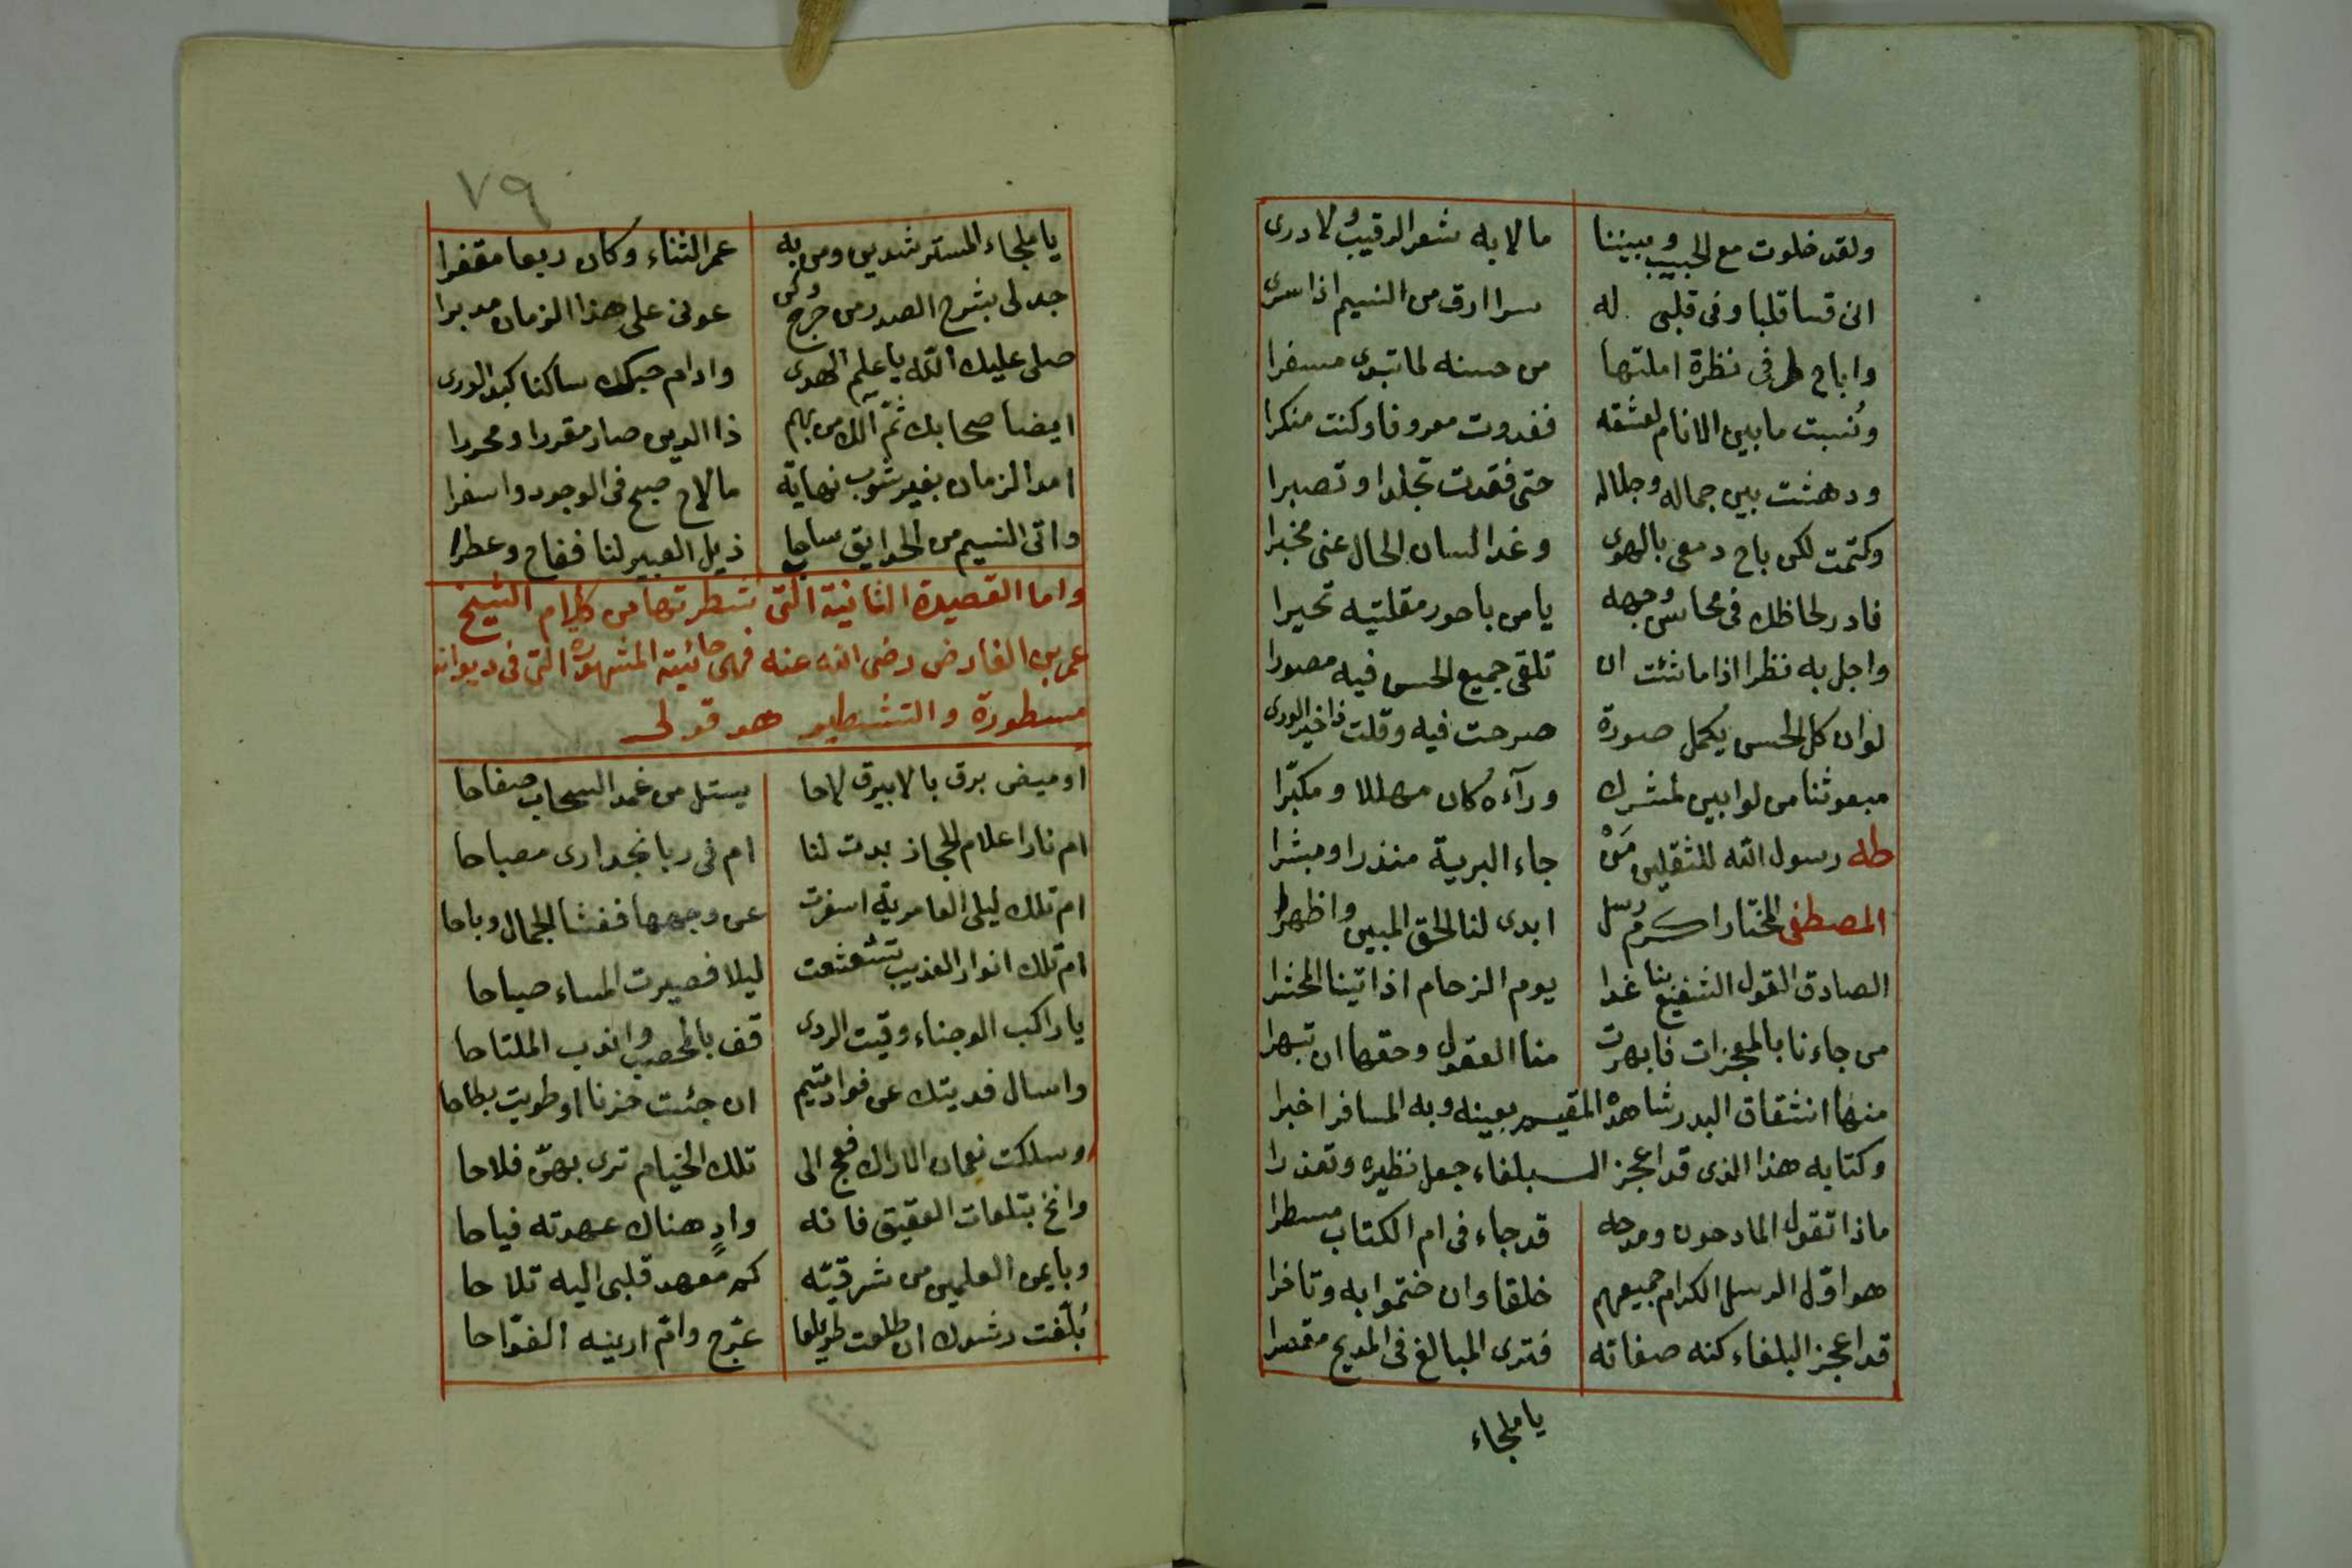 ولقد خلوت مع الحبيب وبيننا ما لا به شعر الرقيب ولا درى
انى قسا قلبا وفى قلبى له سرا ارق من النسيم اذا سرى
واباح طرفى نظرة املتها من حسنه لما تبدى مسفرا
ونسبت ما بين الانام لعشقه فغدوت معروفا وكنت منكرا
ودهشت بين جماله وجلاله حتى فقدت تجلدا وتصبرا
وكتمت لكن باح دمعى بالهوى وغدا لسان الحال عنى مخبرا
فادر لحاظك فى محاسن وجهه يا من باحور مقلتيه تحيرا
واجل به نظرا اذا ما شئت ان تلقى جميع الحسن فيه مصورا
لو ان كل الحسن يكمل صورة صرحت فيه وقلت ذا خير الورى
مبعوثنا من لوا بين لمشرك ورآءه كان مهللا ومكبّرا
طه رسول الله للثقلين مَنْ جاء البرية منذرا ومبشرا
المصطفى المختار اكرم رسل ابدى لنا الحق المبين واظهرا
الصادق القول الشفيع بنا غدا يوم الزحام اذ اتينا المحشرا
من جاءنا بالمعجزات فابهرت منا العقول وحقها ان تبهرا
منها انشقاق البدر شاهده المقيم بعينه وبه المسافر اخبرا
وكتابه هذا الذى قد اعجز البلغاء جعل نظيره وتعذرا
ماذا تقول المادحون ومدحه قد جاء فى ام الكتاب مسطرا
هو اوّل الرسل الكرام جميعهم خلقا وان ختموا به وتاخرا
قد اعجز البلغاء كنه صفاته فترى المبالغ فى المديح مقصرا
يا ملجاء
٧٩
يا ملجاء المسترشدين ومن به عمر الثناء وكان ربعا مقفرا
جد لى بشرح الصدر من حرج وكن عونى على هذا الزمان مدبرا
صلى عليك الله يا علم الهدى وادام حبك ساكنا كبد الورى
ايضا صحابك ثمّ آلك من بهم ذا الدين صار مقررا ومحررا
امد الزمان بغير شوب نهاية ما لاح صبح فى الوجود واسفرا
واتى النسيم من الحدايق ساحبا ذيل العبير لنا ففاح وعطرا
واما القصيدة الثانية التى شطرتها من كلام الشيخ
عمر بن الفارض رضى الله عنه فهى حائيته المشهورة التى فى ديوانه
مسطورة والتشطير هو قولى
اوميض برق بالابيرق لاحا يستل من غمد السحاب صفاحا
ام نار اعلام الحجاز بدت لنا ام فى ربا نجد ارى مصباحا
ام تلك ليلى العامرية اسفرت عن وجهها ففشا الجمال وباحا
ام تلك انوار العذيب تشعشعت ليلا فصيرت المساء صباحا
يا راكب الوجناء وقيت الردى قف بالمحصب واندب الملتاحا
واسال فديتك عن فواد متيم ان جئت حزنا او طويت بطاحا
وسلكت نعمان الاراك فعج الى تلك الخيام ترى بهنّ فلاحا
وانخ بتلعات العقيق فانه وادٍ هناك عهدته فياحا
وبايمن العلمين من شرقيّه كم معهد قلبى اليه تلاحا
بُلّغت رشدك ان طلعت طويلعا عرّج وامّ ارينه الفوّاحا